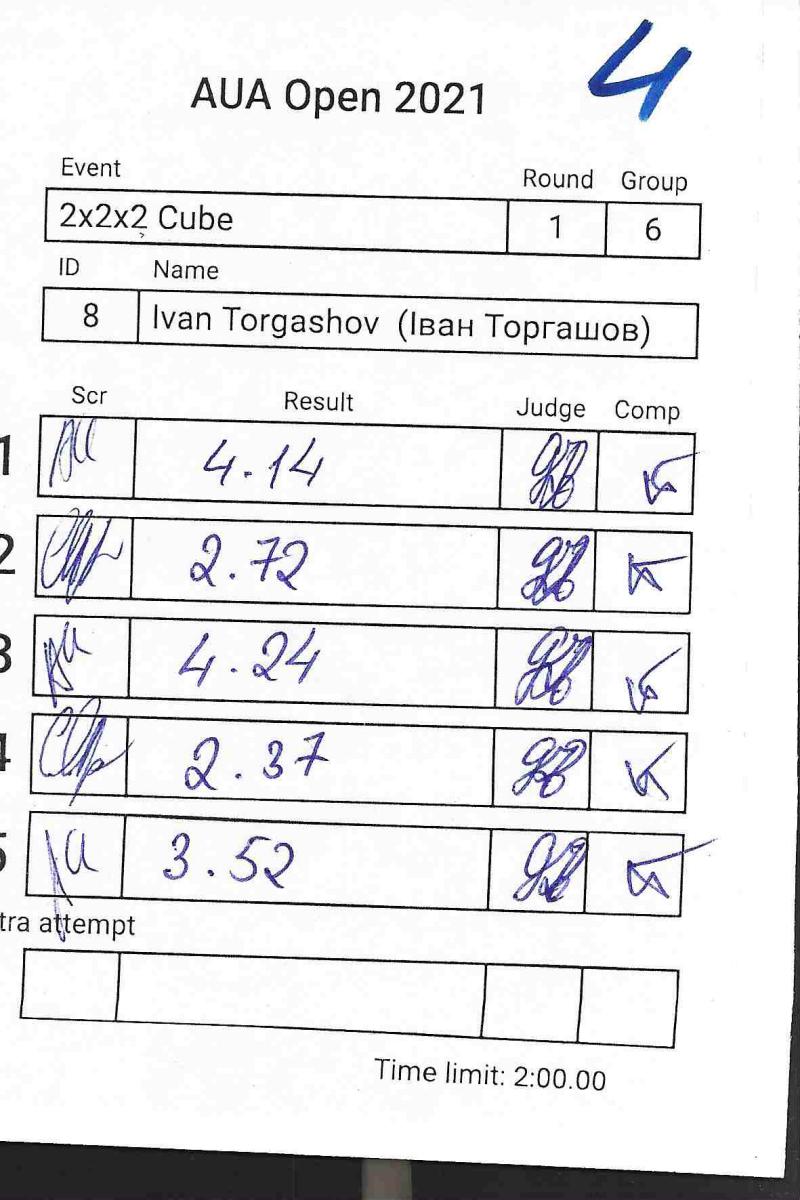 4
AUA Open 2021
Event Round Group
2x2x2 Cube 1 6
ID Name
8 Ivan Torgashov (Іван Торгашов)
Scr Result Judge Comp
1 4.14
2 2.72
3 4.24
4 2.37
5 3.52
tra attempt
Time limit: 2:00.00